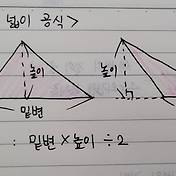 넓이 공식>
높이 높이
밑변
: 밑변 × 높이 ÷ 2